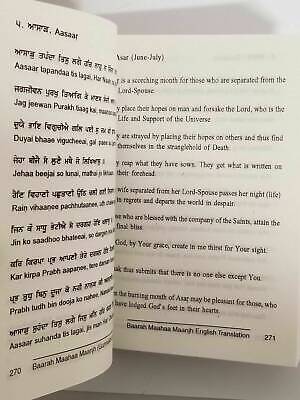 ੫. ਆਸਾੜ, Aasaar
ਆਸਾੜੁ ਤਪੰਦਾ ਤਿਸੁ ਲਗੈ ਹਰਿ ਨਾਹੁ ਨ
Aasaar tapandaa tis lagai, Har Naah
ਜਗਜੀਵਨ ਪੁਰਖੁ ਤਿਆਗਿ ਕੈ ਮਾਣਸ
Jag jeewan Purakh tiaag kai maanas
ਦੁਯੈ ਭਾਇ ਵਿਗੁਚੀਐ ਗਲਿ ਪਈ ਸੁ
Duyai bhaae vigucheeai, gal pai su
ਜੇਹਾ ਬੀਜੈ ਸੋ ਲੁਣੈ ਮਥੈ ਜੋ ਲਿਖਿਆਸੁ
Jehaa beejai so lunai, mathai jo
ਰੈਣਿ ਵਿਹਾਣੀ ਪਛੁਤਾਣੀ ਉਠਿ ਚਲੀ
Rain vihaanee pachhutaanee,
ਜਿਨ ਕੌ ਸਾਧੂ ਭੇਟੀਐ ਸੋ ਦਰਗਹ ਹੋਇ
Jin ko saadhoo bhateeai, so
ਕਰਿ ਕਿਰਪਾ ਪ੍ਰਭ ਆਪਣੀ ਤੇਰੇ ਦਰਸਨ
Kar kirpa Prabh aapanee, tere
ਪ੍ਰਭ ਤੁਧੁ ਬਿਨੁ ਦੂਜਾ ਕੋ ਨਹੀ
Prabh tudh bin dooja ko nahee,
ਆਸਾੜੁ ਸੁਹੰਦਾ ਤਿਸੁ ਲਗੈ ਜਿਸੁ ਮਨਿ ਹਰਿ
Aasaar suhanda tis lagai, jis man Har
270 Baarah Maahaa Maanjh
Asar (June-July)
is a scorching month for those who are separated from the
Lord-Spouse.
place their hopes on man and forsake the Lord, who is
the Life and Support of the Universe
are strayed by placing their hopes on others and thus find
themselves in the stranglehold of Death.
reap what they have sown. They get what is written on
their forehead.
wife separated from her Lord-Spouse passes her night (life)
in regrets and departs to the world in despair.
who are blessed with the company of the Saints, attain
the final bliss.
God, by Your grace, create in me thirst for Your sight.
submits that there is no one else except You.
the burning month of Asar may be pleasant for those, who
have lodged God's feet in their hearts.
Baarah Maahaa Maanjh English Translation 271